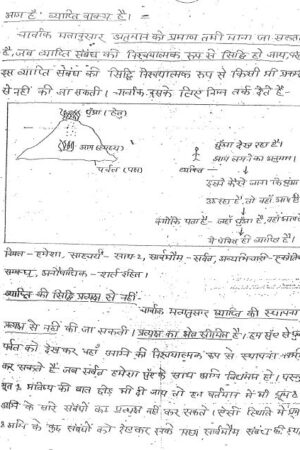 भाग है: व्याप्ति वाक्य है।
चार्वाक मतानुसार अनुमान को प्रमाण तभी माना जा सकता
है, जब व्याप्ति संबंध की निश्चयात्मक रूप से सिद्धि हो जाय,
इस व्याप्ति संबंध की सिद्धि निश्चयात्मक रूप से किसी भी
से नहीं की जा सकती। चार्वाक इसके लिए निम्न तर्क देते हैं-
धुँआ (हेतु)
आग (साध्य)
पर्वत (पक्ष)
धुँआ देख रहा है।
आग लगने का अनुमान।
व्यक्ति
इसने कैसे जाना कि धुँआ
उठ रहा है, तो वहाँ आग है
क्योंकि पता है - जहाँ धुँआ है, वहाँ आग
ये संबंध ही व्याप्ति है।
नियत - हमेशा, साहचर्य - साथ २, सार्वभौम - सर्वत्र, अव्यभिचारी -
सम्बन्ध, अनौपाधिक - शर्त रहित।
व्याप्ति की सिद्धि प्रत्यक्ष से नहीं-
चार्वाक मतानुसार व्याप्ति की स्थापना
प्रत्यक्ष से नहीं की जा सकती। प्रत्यक्ष का क्षेत्र सीमित है। हम धुंए से
पर्वत को देखकर वहाँ अग्नि की निश्चयात्मक रूप से स्थापना तभी
कर सकते हैं जब सर्वत्र हमेशा धुंए के साथ अग्नि विद्यमान हो। परन्तु
भूत व भविष्य की बात छोड़ भी दी जाय तो हम वर्तमान में भी धूम व
अग्नि के सारे संबंधों का प्रत्यक्ष नहीं कर सकते। ऐसी स्थिति में
व अग्नि के कुछ संबंधों को देखकर उनके मध्य सार्वभौम संबंध की